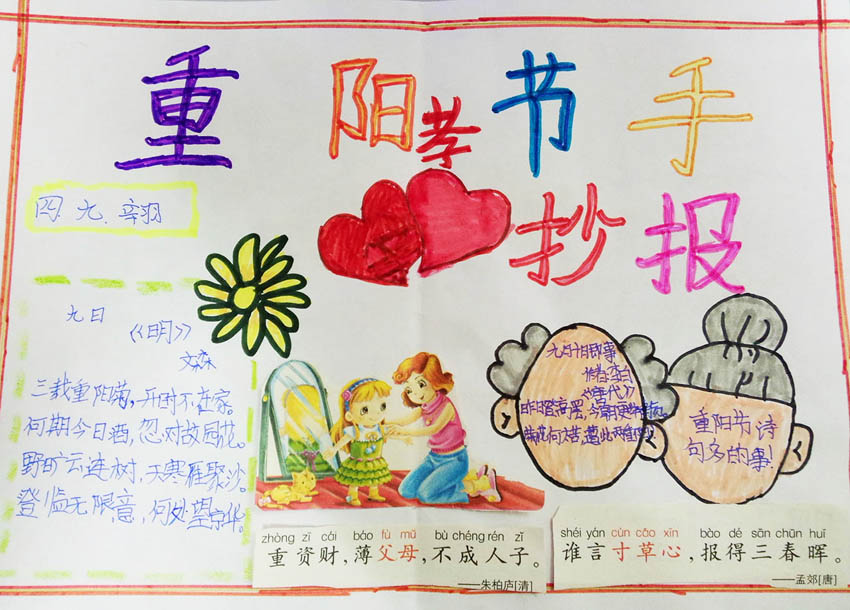 重阳孝节手
抄报
四.九.辛羽
九日
《明》
文森
三载重阳菊,开时不在家。
何期今日酒,忽对故园花。
野旷云连树,天寒雁聚沙。
登临无限意,何处望京华。
九月十日即事
作者李白
《唐代》
昨日登高罢,今朝更举觞。
菊花何太苦,遭此两重阳。
重阳节诗
句多的事!
zhòng zī cái báo fù mǔ bù chéng rén zǐ
重资财,薄父母,不成人子。
——朱柏庐[清]
shéi yán cùn cǎo xīn bào dé sān chūn huī
谁言寸草心,报得三春晖。
——孟郊[唐]